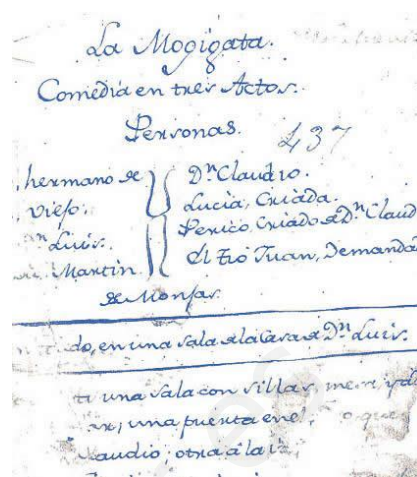 La Mogigata.
Comedia en tres Actos.
Personas.
437
hermano de
viejo.
Dn Luis.
Martin
Dn Claudio.
Lucía, Criada.
Perico, Criado de Dn Claud
El tio Juan, Demanda
de Monjas.
do, en una sala de la Casa de Dn Luis.
una sala con sillas, mesa, y
una puerta en el que
laudio; otra á la iz